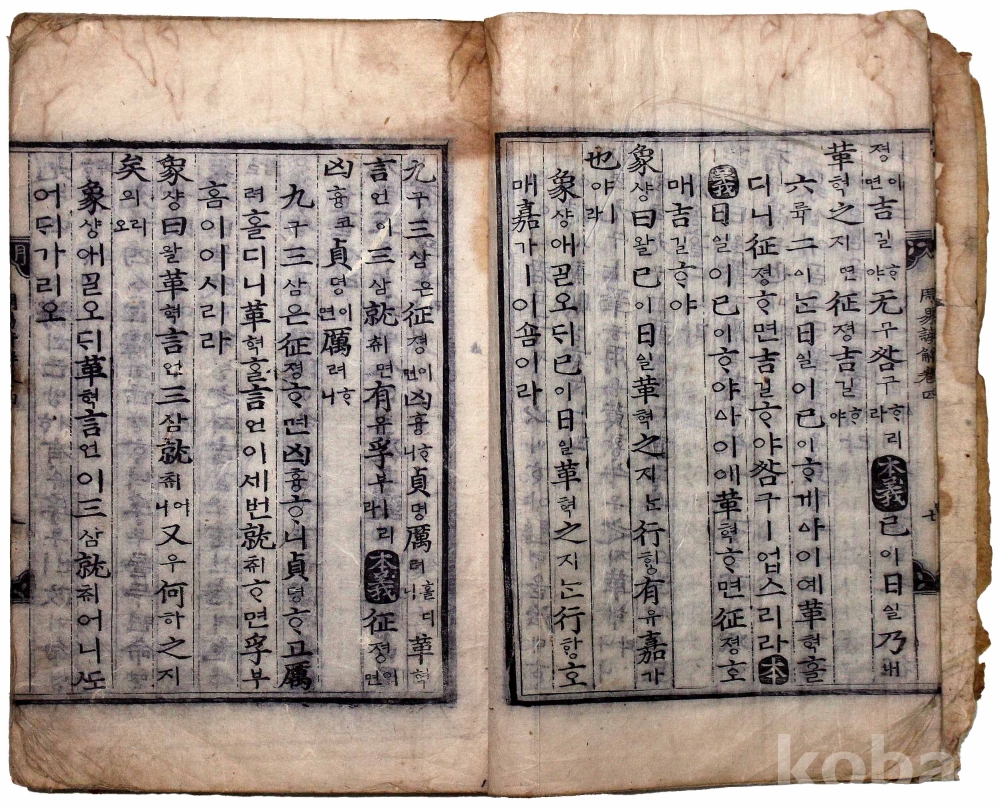 졍이면吉길ᄒᆞ야无무咎구ᄒᆞ리라本義已이日일乃내
革혁之지면征졍吉길ᄒᆞ야
六륙二이ᄂᆞᆫ日일이已이ᄒᆞ게아이예革혁홀
디니征졍ᄒᆞ면吉길ᄒᆞ야咎구ㅣ업스리라本
義日일이已이ᄒᆞ야아이애革혁ᄒᆞ면征졍호
매吉길ᄒᆞ야
象샹曰왈已이日일革혁之지ᄂᆞᆫ行ᄒᆡᆼ有유嘉가
也야ㅣ라
象샹애ᄀᆞᆯ오ᄃᆡ已이日일革혁之지ᄂᆞᆫ行ᄒᆡᆼ호
매嘉가ㅣ이숌이라
周易諺解卷四
九구三삼은征졍이면凶흉ᄒᆞ니貞뎡厲려홀디니革혁
言언이三삼就취면有유孚부ㅣ리라本義征졍이면
凶흉코貞뎡이면厲려ᄒᆞ니
九구三삼은征졍ᄒᆞ면凶흉ᄒᆞ니貞뎡ᄒᆞ고厲
려홀디니革혁홀言언이세번就취ᄒᆞ면孚부
홈이이시리라
象샹曰왈革혁言언三삼就취어니又우何하之지
矣의리오
象샹애ᄀᆞᆯ오ᄃᆡ革혁言언이三삼就취어니ᄯᅩ
어ᄃᆡ가리오
koba